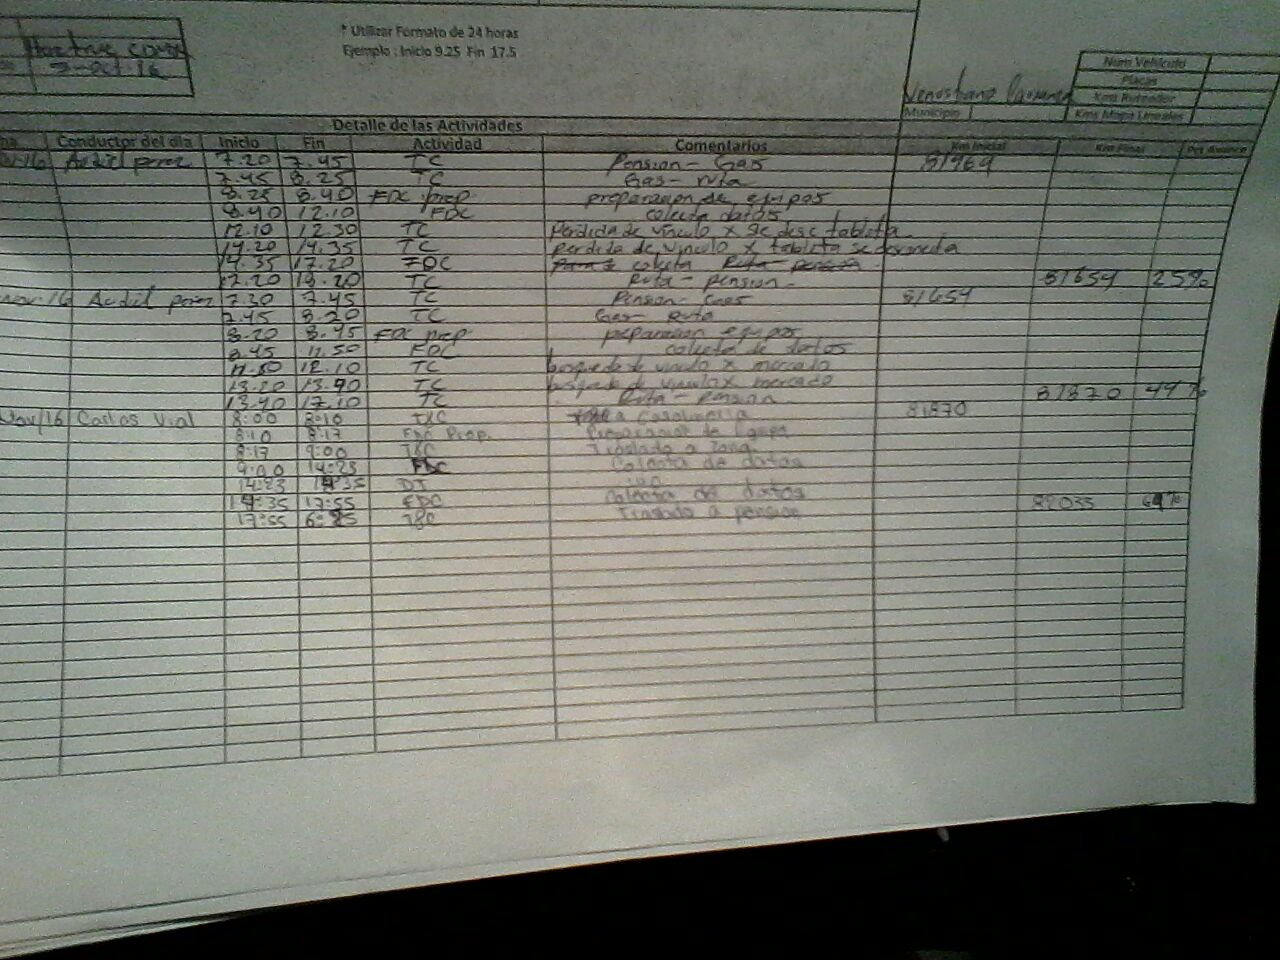 * Utilizar Formato de 24 horas
Ejemplo : Inicio 9.25 Fin 17.5
Num Vehiculo
Placas
Kms Ruteador
Municipio
Kms Mapa Lineales
Detalle de las Actividades
Conductor del día Inicio Fin Actividad Comentarios Km Inicial Km Final Pct Avance
7.20 7.45 TC Pension - Gas
7.45 8.25 TC Gas - ruta
8.25 8.40 FDC prep preparacion de equipos
8.40 12.10 FDC colecta datos
12.10 12.30 TC Perdida de vinculo x se desc tableta
14.20 14.35 TC perdida de vinculo x tableta se desconecta
14.35 17.20 FDC colecta
17.20 18.20 TC Ruta - pension 81654 25%
nov-16 perez 7.30 7.45 TC Pension - Gas 81654
7.45 8.20 TC Gas - Ruta
8.20 8.45 FDC prep preparacion equipos
8.45 11.50 FDC colecta de datos
11.50 12.10 TC busqueda de vinculo x mercado
13.20 13.40 TC busqueda de vinculo x mercado
13.40 17.10 TC Ruta - pension 81870 44%
Nov/16 Carlos Vial 8:00 8:10 a Gasolineria 81870
8:10 8:17 FDC Prep. Preparacion de Equipo
8:17 9:00 Traslado a zona
9:00 14:23 FDC Colecta de datos
14:23 14:35 DT
14:35 17:55 FDC Colecta de datos 82035
17:55 Traslado a pension